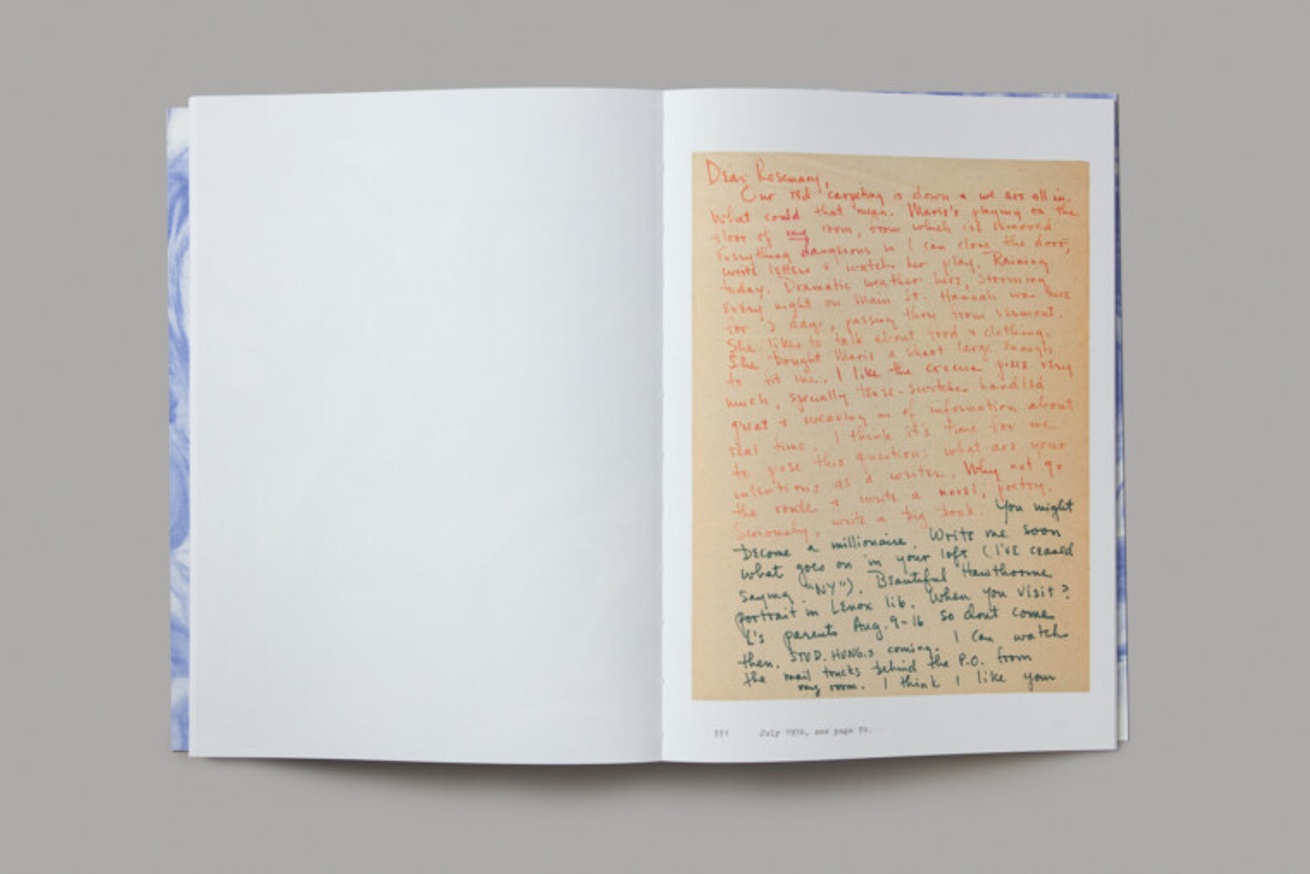 Dear Rosemary,
Our red carpeting is down & we are all in.
What could that mean. Marie's playing on the
floor of my room, from which is removed
Everything dangerous so I can close the door,
write letters & watch her play. Raining
today. Dramatic weather here, storming
Every night on Main St. Hannah was here
for 3 days, passing thru from Vermont.
She likes to talk about food & clothing.
She bought Marie a shirt large enough
to fit me. I like the pieces very
much, specially handled
great & weaving in of information about
real time. I think it's time for me
to pose this question: what are your
intentions as a writer. Why not go
the route & write a novel, poetry.
Seriously, write a big book. You might
become a millionaire. Write me soon
what goes on in your loft (I've ceased
saying "NY"). Beautiful Hawthorne
portrait in Lenox lib. When you visit?
L's parents Aug. 9-16 so dont come
then. STUD. HUNG.s coming. I can watch
the mail trucks behind the P.O. from
my room. I think I like your
July see page